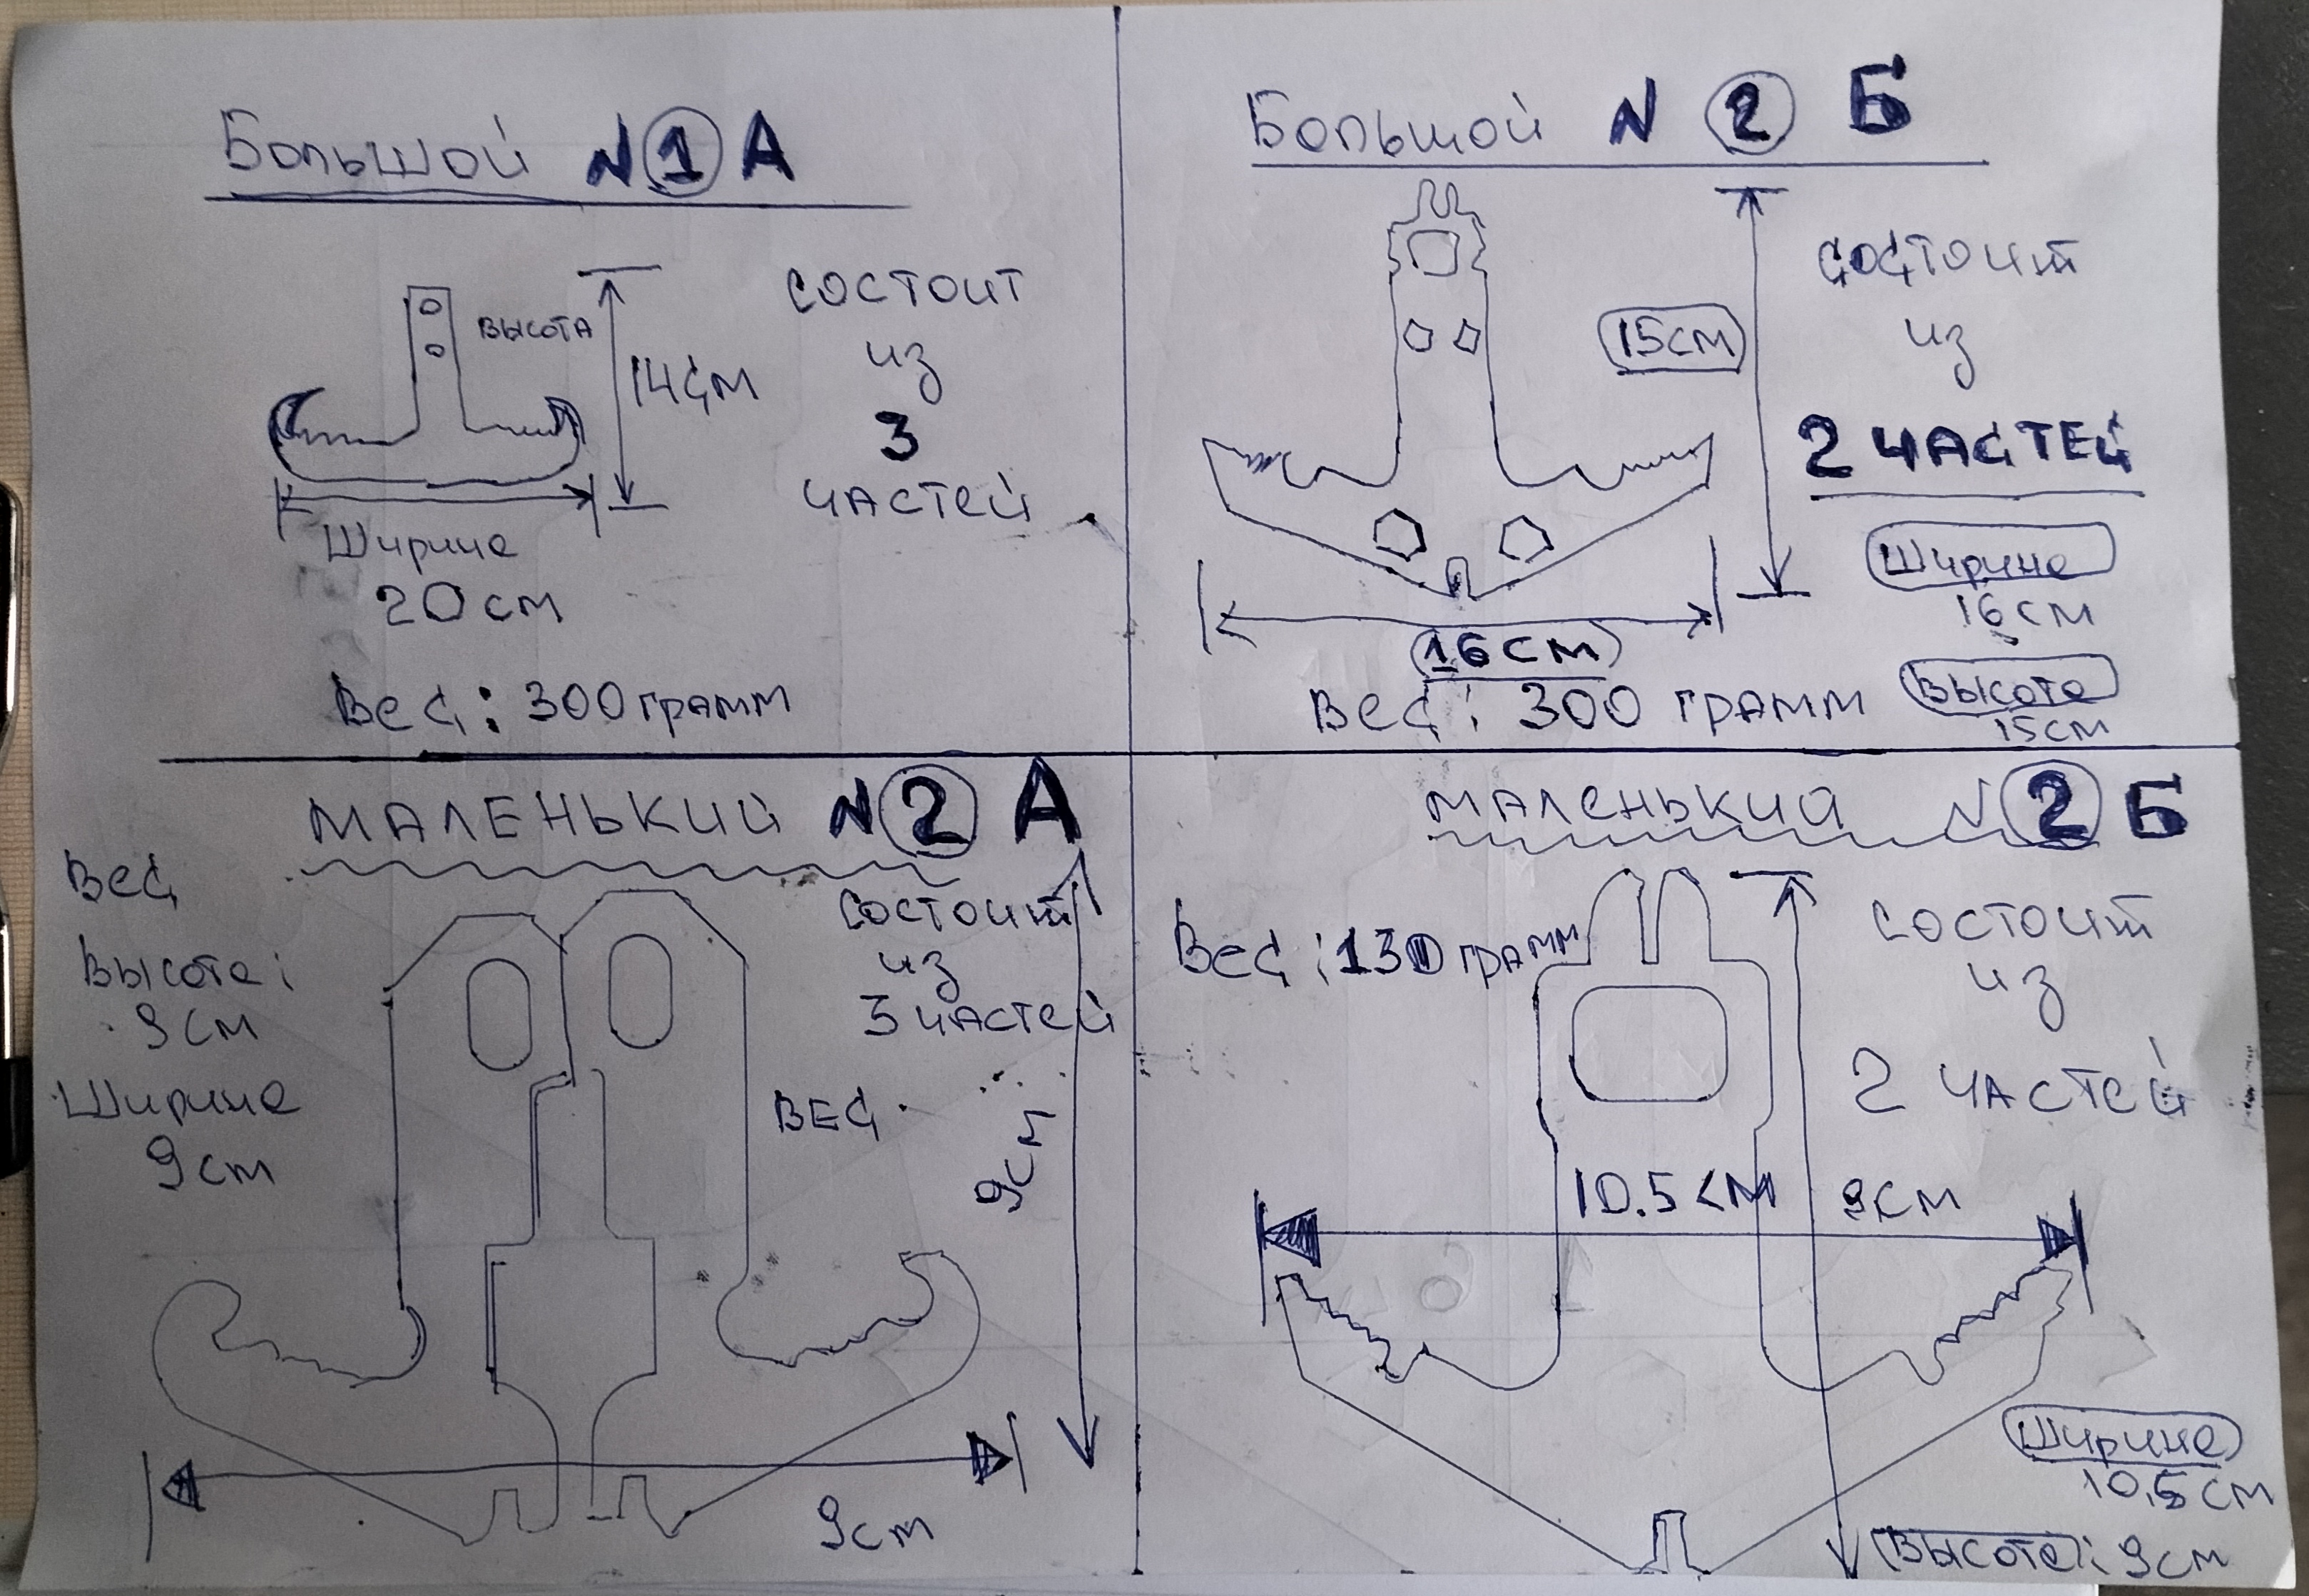 Большой N 1 А
высота
14см
состоит
из
3
частей
Ширине
20см
Вес: 300грамм
Большой N 2 Б
15см
состоит
из
2 частей
Ширине
16см
16см
Вес: 300 грамм
Высоте
15см
МАЛЕНЬКИЙ N 2 А
Вес
Высоте:
9см
Ширине
9см
состоит
из
3 частей
ВЕС
9см
9см
маленький N 2 Б
Вес: 130грамм
состоит
из
2 частей
10.5см
9см
Ширине
10,5см
Высоте: 9см